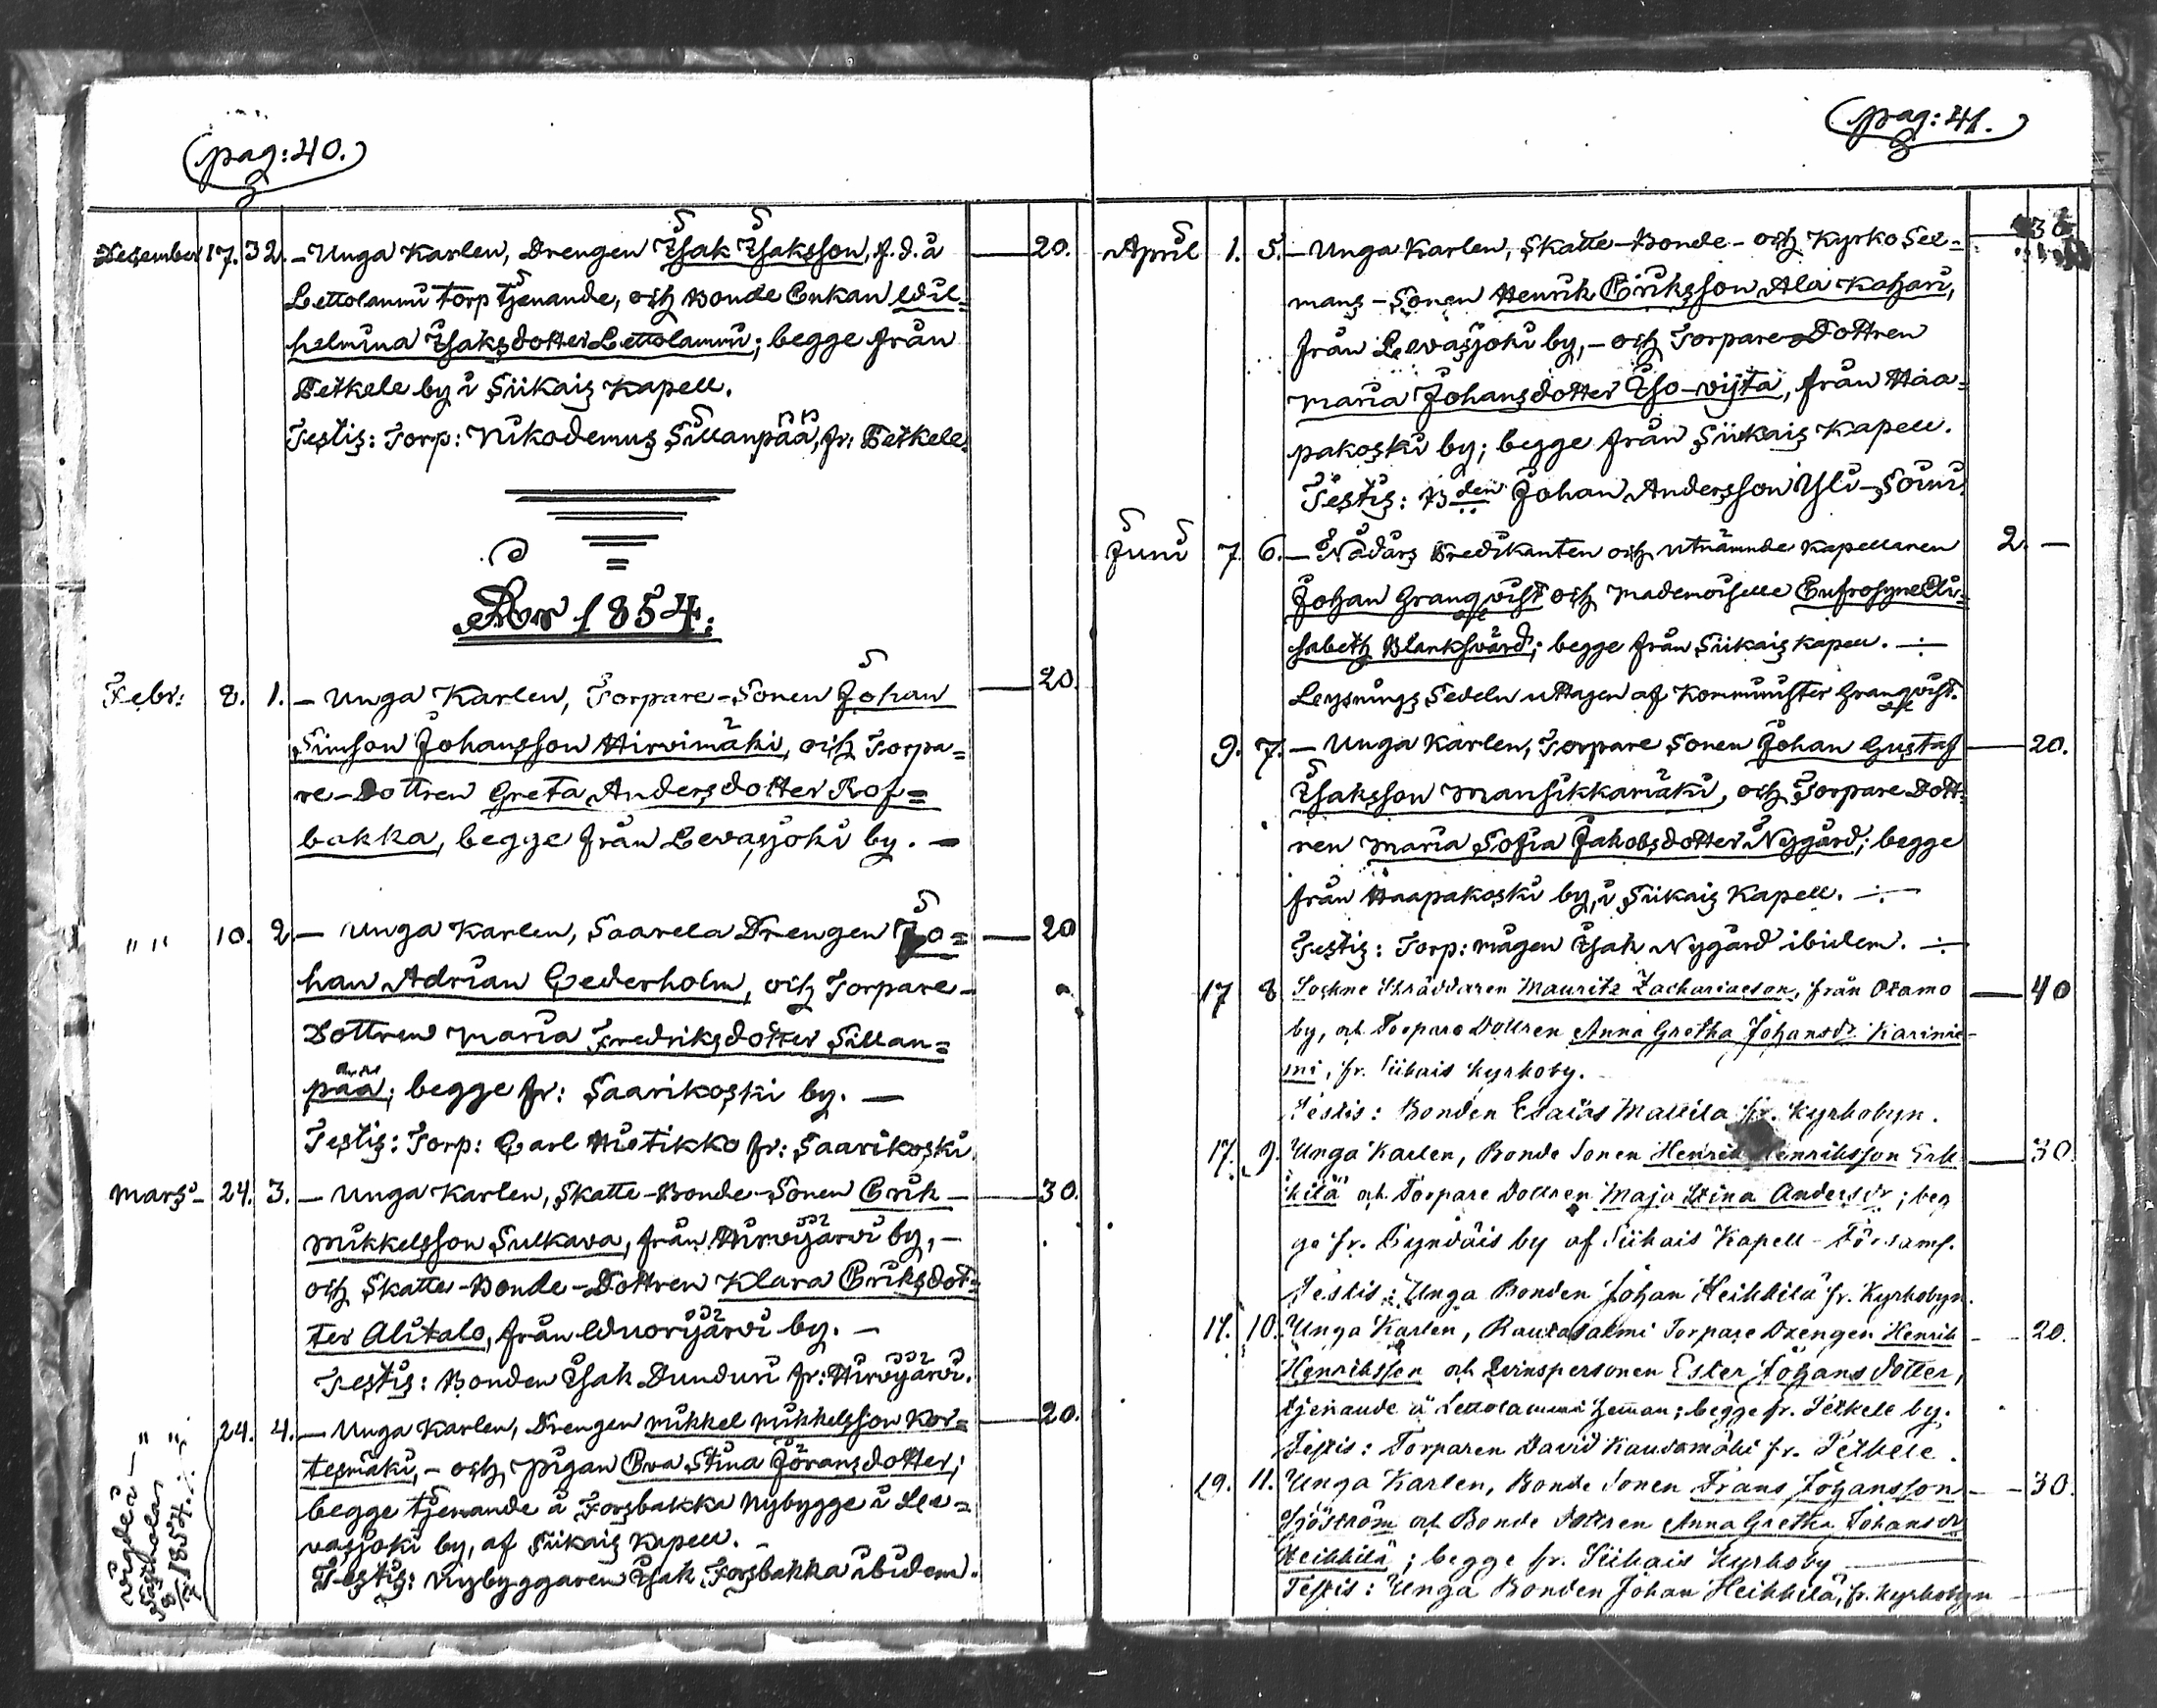 (pag: 40.)
December 17. 32. – Unga Karlen, Drengen Isak Isaksson, f. d. å — 20.
Lettolammi torp tjenande, och Bonde Enkan Wil=
helmina Isaksdotter Lettolammi; begge från
Petkele by i Siikais Kapell.
Testis: Torp: Nikodemus Sillanpää, fr: Petkele.
År 1854:
Febr: 8. 1. – Unga Karlen, Torpare-Sonen Johan — 20.
Simson Johansson Hirvimäki, och Torpa=
re-Dottren Greta Andersdotter Rof=
bakka, begge från Levasjoki by. –
" " 10. 2. – Unga Karlen, Saarela Drengen Jo= — 20
han Adrian Cederholm, och Torpare-
Dottren Maria Fredriksdotter Sillan=
pää; begge fr: Saarikoski by. –
Testis: Torp: Carl Histikko fr: Saarikoski
Mars – 24. 3. – Unga Karlen, Skatte-Bonde-Sonen Erik — 30.
Mikkelsson Sulkava, från Hirvijärvi by, –
och Skatte-Bonde-Dottren Klara Eriksdot=
ter Alitalo, från Wuorijärvi by. –
Testis: Bonden Isak Dunduri fr: Hirvijärvi.
" 24. 4. – Unga Karlen, Drengen Mikkel Mikkelsson Kor= — 20.
tesmäki, – och Pigan Eva Stina Jöransdotter;
begge tjenande å Forsbakka Nybygge i Le=
vasjoki by, af Siikais Kapell.
Testis: Nybyggaren Isak Forsbakka ibidem.
1854.
(pag: 41.)
April 1. 5. – Unga Karlen, Skatte-Bonde- och Kyrko Sex=
mans-Sonen Henrik Eriksson Ala Kahari,
från Levasjoki by, – och Torpare-Dottren
Maria Johansdotter Iso-vijta, från Haa=
pakoski by; begge från Siikais Kapell.
Testis: Bden Johan Andersson Yli-Souri.
Juni 7. 6. – Nådårs Predikanten och utnämnde Kapellanen 2. –
Johan Granqvist och Mademoiselle Eufrosyne Eli=
sabeth Blanksvärd; begge från Siikais Kapell.
Leysnings Sedeln uttagen af Kommunister Granqvist.
9. 7. – Unga Karlen, Torpare Sonen Johan Gustaf — 20.
Isaksson Mansikkamäki, och Torpare Dott=
ren Maria Sofia Jakobsdotter Nygård; begge
från Haapakoski by, i Siikais Kapell.
Testis: Torp: mågen Isak Nygård ibidem.
17 8 Sockne Skräddaren Mauritz Zachariasson, från Otamo — 40
by, och Torpare Dottren Anna Gretha Johansdr. Karinie-
mi, fr. Siikais Kyrkoby.
Testis: Bonden Esaias Mattila fr. Kyrkobyn.
17. 9. Unga Karlen, Bonde Sonen Henrik Henriksson Erk — 30
kilä och Torpare Dottren Maja Stina Andersdr; beg
ge fr. by af Siikais Kapell-Församl.
Testis: Unga Bonden Johan Heikkilä fr. Kyrkobyn.
17. 10. Unga Karlen, Rautasalmi Torpare Drengen Henrik – 20.
Henriksson och Qvinspersonen Ester Johansdotter,
tjenande å Lettolammi hemman; begge fr. Petkele by.
Testis: Torparen David Kausamäki fr. Petkele.
19. 11. Unga Karlen, Bonde Sonen Frans Johansson – 30.
Sjöström och Bonde Dottren Anna Gretha Johansdr
Heikkilä; begge fr. Siikais Kyrkoby
Testis: Unga Bonden Johan Heikkilä, fr. Kyrkobyn